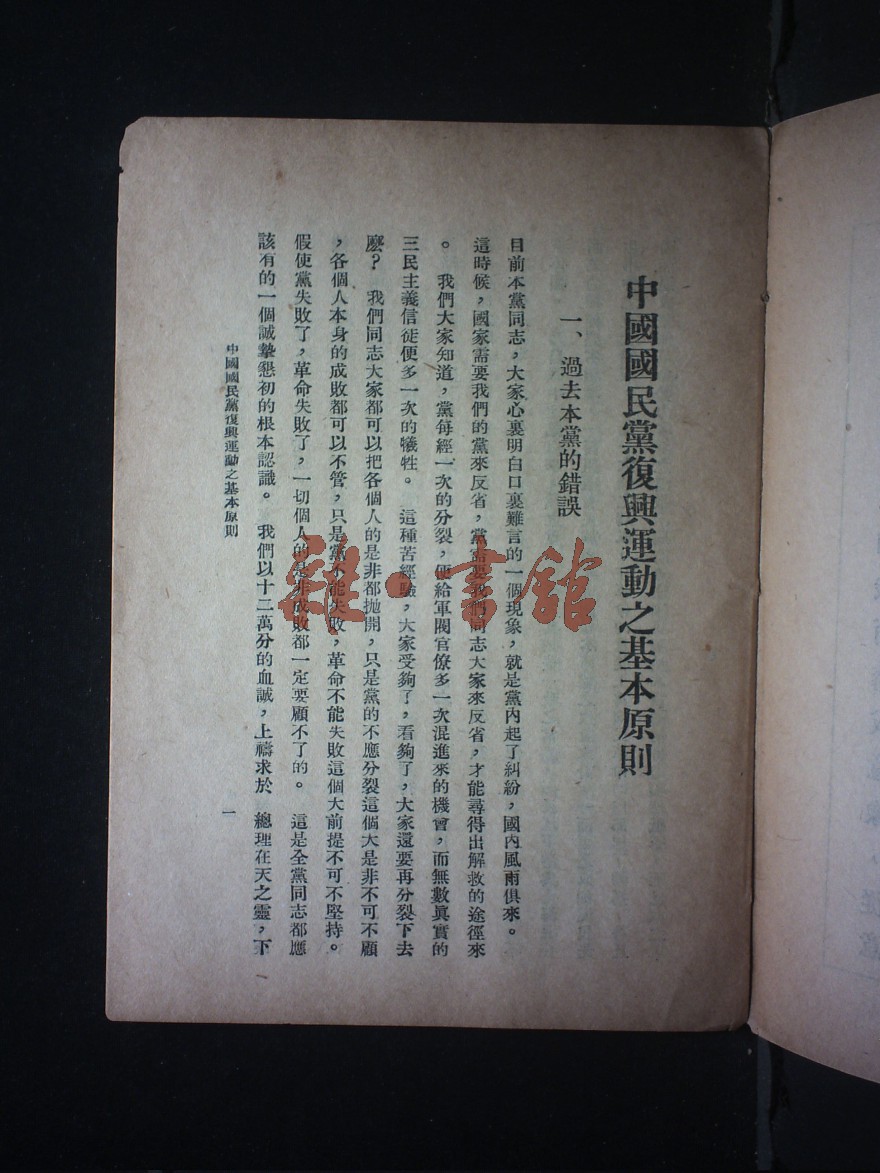 中國國民黨復興運動之基本原則
一、過去本黨的錯誤
目前本黨同志，大家心裏明白口裏難言的一個現象，就是黨內起了糾紛，國內風雨俱來。
這時候，國家需要我們的黨來反省，黨需要我們同志大家來反省，才能尋得出解救的途徑來
。我們大家知道，黨每經一次的分裂，便給軍閥官僚多一次混進來的機會，而無數眞實的
三民主義信徒便多一次的犧牲。這種苦經驗，大家受夠了，看夠了，大家還要再分裂下去
麽？我們同志大家都可以把各個人的是非都拋開，只是黨的不應分裂這個大是非不可不顧
，各個人本身的成敗都可以不管，只是黨不能失敗，革命不能失敗這個大前提不可不堅持。
假使黨失敗了，革命失敗了，一切個人的是非成敗都一定要顧不了的。這是全黨同志都應
該有的一個誠摯懇初的根本認識。我們以十二萬分的血誠，上禱求於　總理在天之靈，下
中國國民黨復興運動之基本原則
一
雜·書館